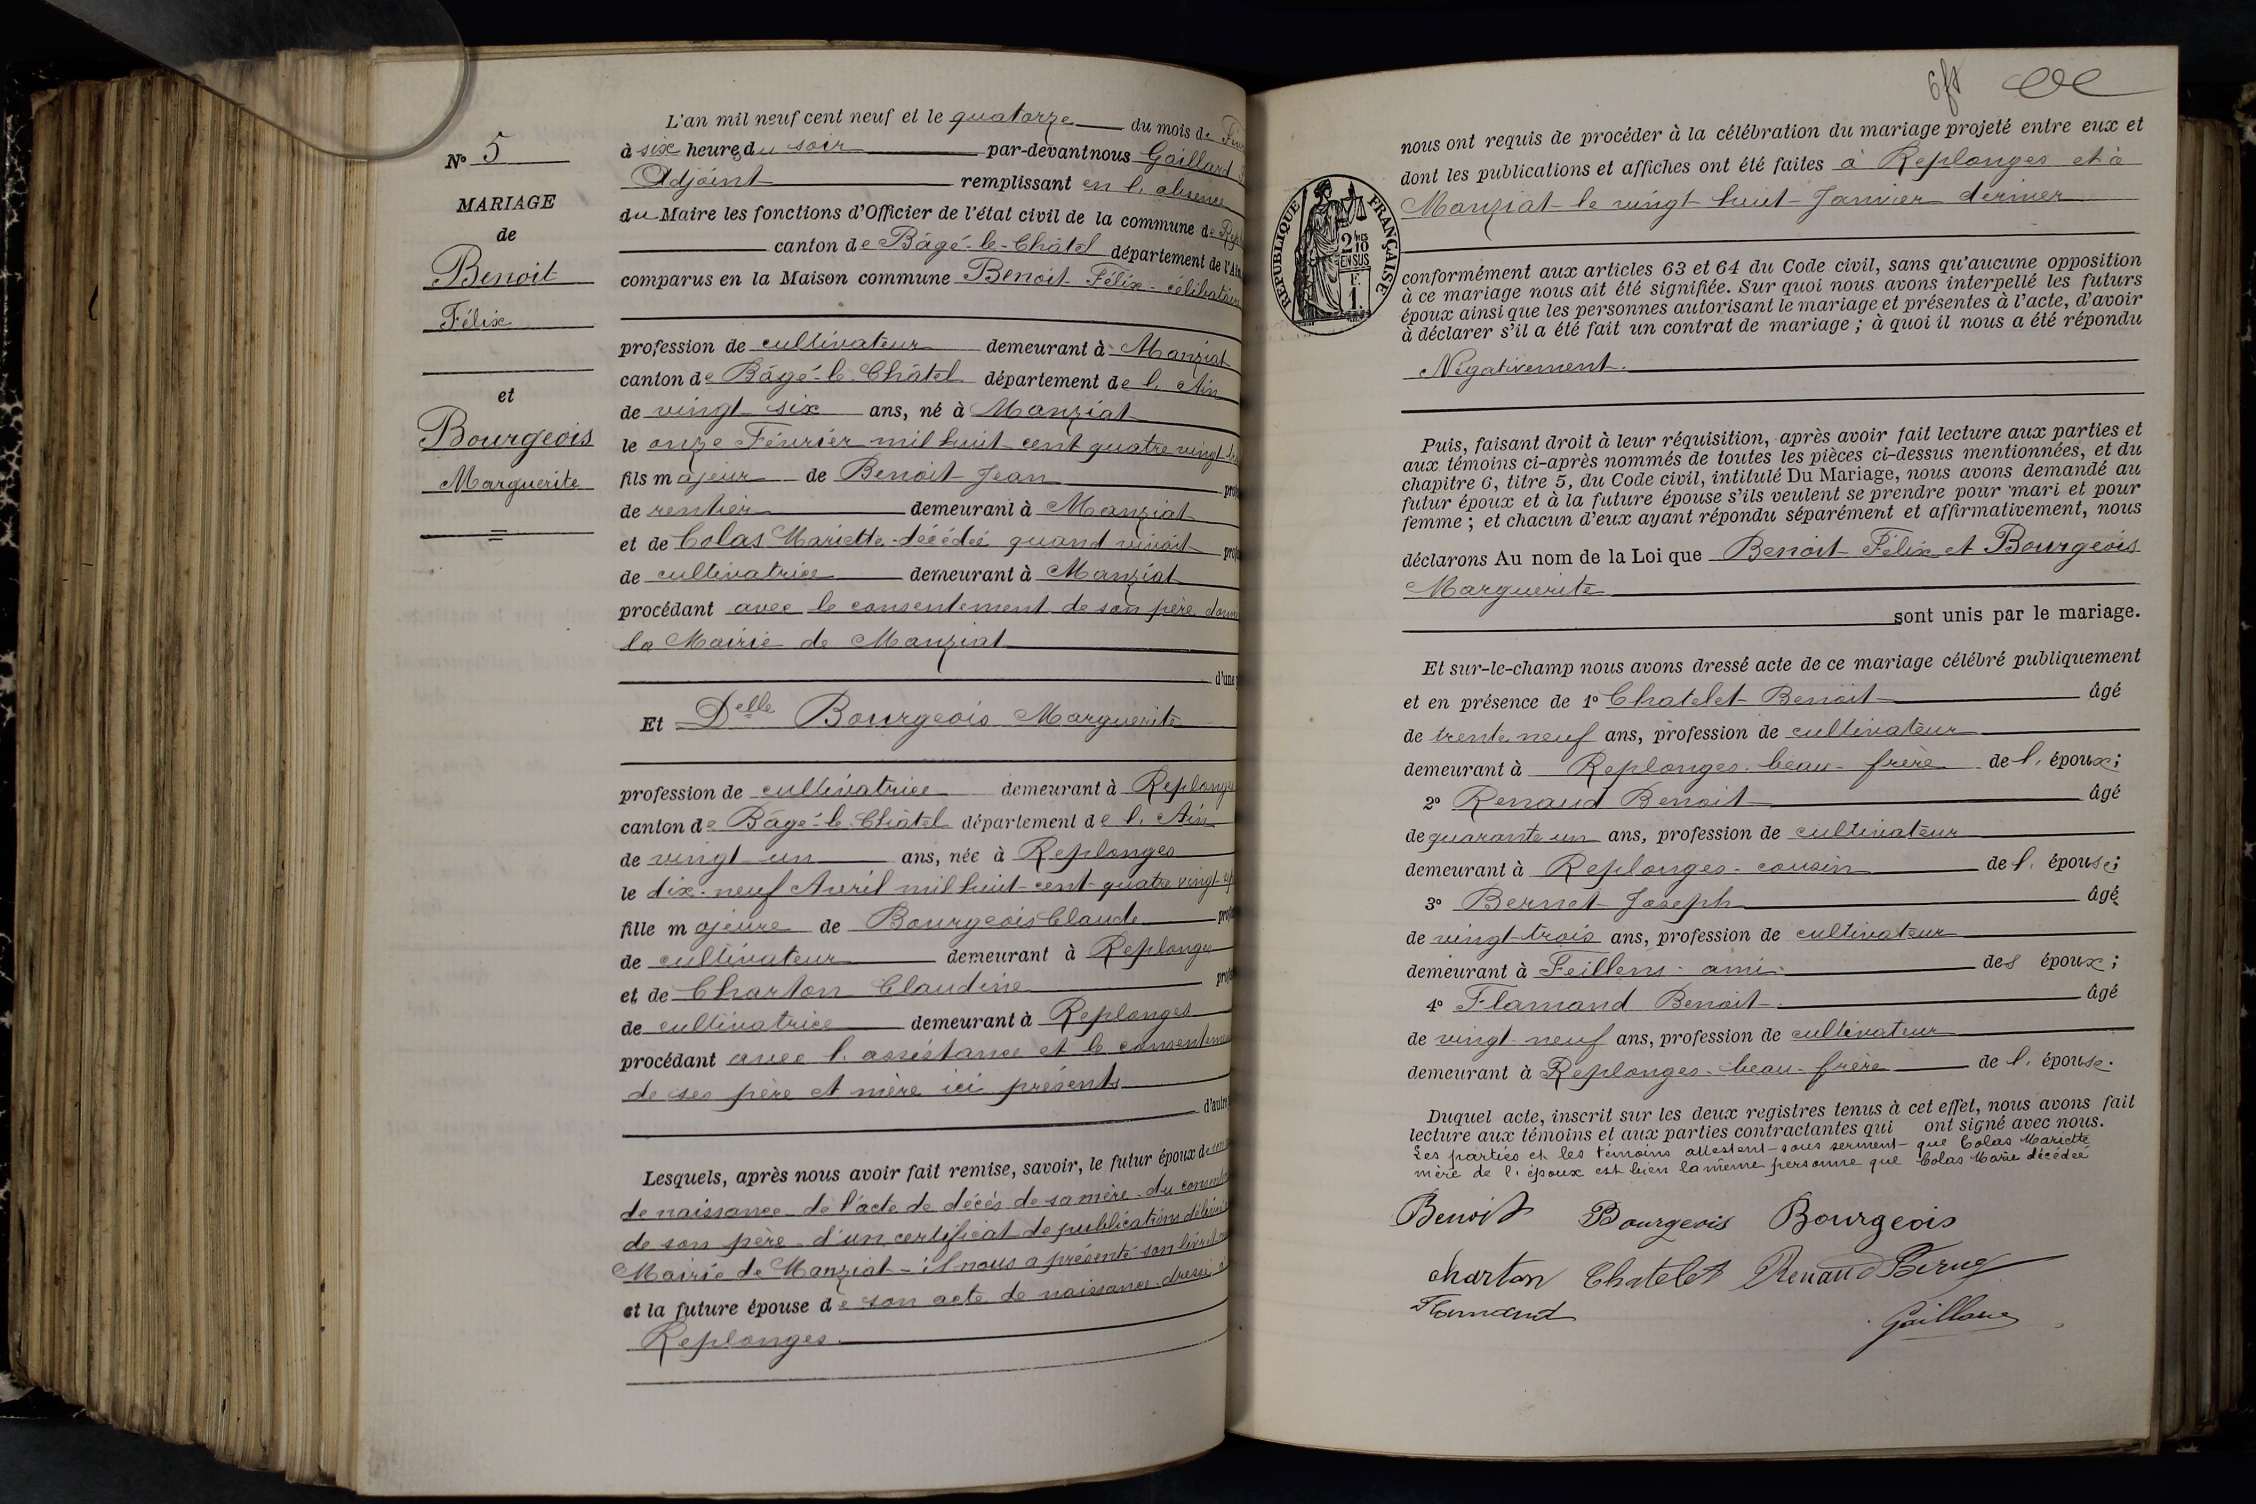 N° 5
MARIAGE
de
Benoit
Félix
et
Bourgeois
Marguerite
L'an mil neuf cent neuf et le quatorze du mois de
à six heures du soir par-devant nous Gaillard
Adjoint remplissant en l'absence
du Maire les fonctions d'Officier de l'état civil de la commune de
canton de Bâgé-le-Châtel département de l'Ain
comparus en la Maison commune Benoit Félix célibataire
profession de cultivateur demeurant à Manziat
canton de Bâgé-le-Châtel département de l'Ain
de vingt six ans, né à Manziat
le onze Février mil huit cent quatre vingt
fils majeur de Benoit Jean
de rentier demeurant à Manziat
et de Colas Mariette décédée quand vivait
de cultivatrice demeurant à Manziat
procédant avec le consentement de son père
la Mairie de Manziat
d'une
Et Delle Bourgeois Marguerite
profession de cultivatrice demeurant à Replonges
canton de Bâgé-le-Châtel département de l'Ain
de vingt un ans, née à Replonges
le dix-neuf Avril mil huit cent quatre vingt
fille majeure de Bourgeois Claude
de cultivateur demeurant à Replonges
et de Charton Claudine
de cultivatrice demeurant à Replonges
procédant avec l'assistance et le consentement
de ses père et mère ici présents
d'autre
Lesquels, après nous avoir fait remise, savoir, le futur époux de
de naissance de l'acte de décès de sa mère du
de son père d'un certificat de publications
Mairie de Manziat - il nous a présenté son livret
et la future épouse de son acte de naissance dressé
Replonges
6 ft
nous ont requis de procéder à la célébration du mariage projeté entre eux et
dont les publications et affiches ont été faites à Replonges et à
Manziat le vingt huit Janvier dernier
RÉPUBLIQUE FRANÇAISE
2/10
EN SUS
F.
1
conformément aux articles 63 et 64 du Code civil, sans qu'aucune opposition
à ce mariage nous ait été signifiée. Sur quoi nous avons interpellé les futurs
époux ainsi que les personnes autorisant le mariage et présentes à l'acte, d'avoir
à déclarer s'il a été fait un contrat de mariage ; à quoi il nous a été répondu
Négativement.
Puis, faisant droit à leur réquisition, après avoir fait lecture aux parties et
aux témoins ci-après nommés de toutes les pièces ci-dessus mentionnées, et du
chapitre 6, titre 5, du Code civil, intitulé Du Mariage, nous avons demandé au
futur époux et à la future épouse s'ils veulent se prendre pour mari et pour
femme ; et chacun d'eux ayant répondu séparément et affirmativement, nous
déclarons Au nom de la Loi que Benoit Félix et Bourgeois
Marguerite
sont unis par le mariage.
Et sur-le-champ nous avons dressé acte de ce mariage célébré publiquement
et en présence de 1° Chatelet Benoit âgé
de trente neuf ans, profession de cultivateur
demeurant à Replonges beau-frère de l'époux ;
2° Renaud Benoit âgé
de quarante un ans, profession de cultivateur
demeurant à Replonges - cousin de l'épouse ;
3° Bernet Joseph âgé
de vingt-trois ans, profession de cultivateur
demeurant à Feillens - ami des époux ;
4° Flamand Benoit âgé
de vingt-neuf ans, profession de cultivateur
demeurant à Replonges - beau-frère de l'épouse.
Duquel acte, inscrit sur les deux registres tenus à cet effet, nous avons fait
lecture aux témoins et aux parties contractantes qui ont signé avec nous.
Les parties et les témoins attestent sous serment que Colas Mariette
mère de l'époux est bien la même personne que Colas Marie décédée
Benoit Bourgeois Bourgeois
charton Chatelet Renaud
Flamand Gaillard